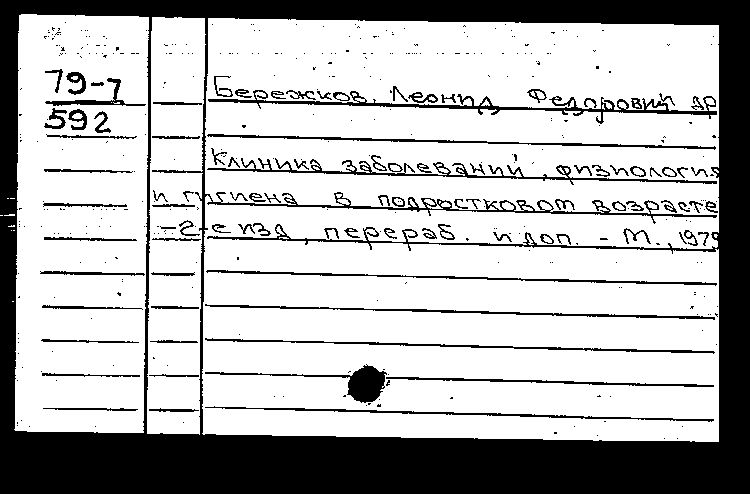 79-7
592
Бережков, Леонид Федорович др
Клиника заболеваний, физиология
и гигиена в подростковом возрасте
-2-е изд, перераб. и доп. - М., 1979